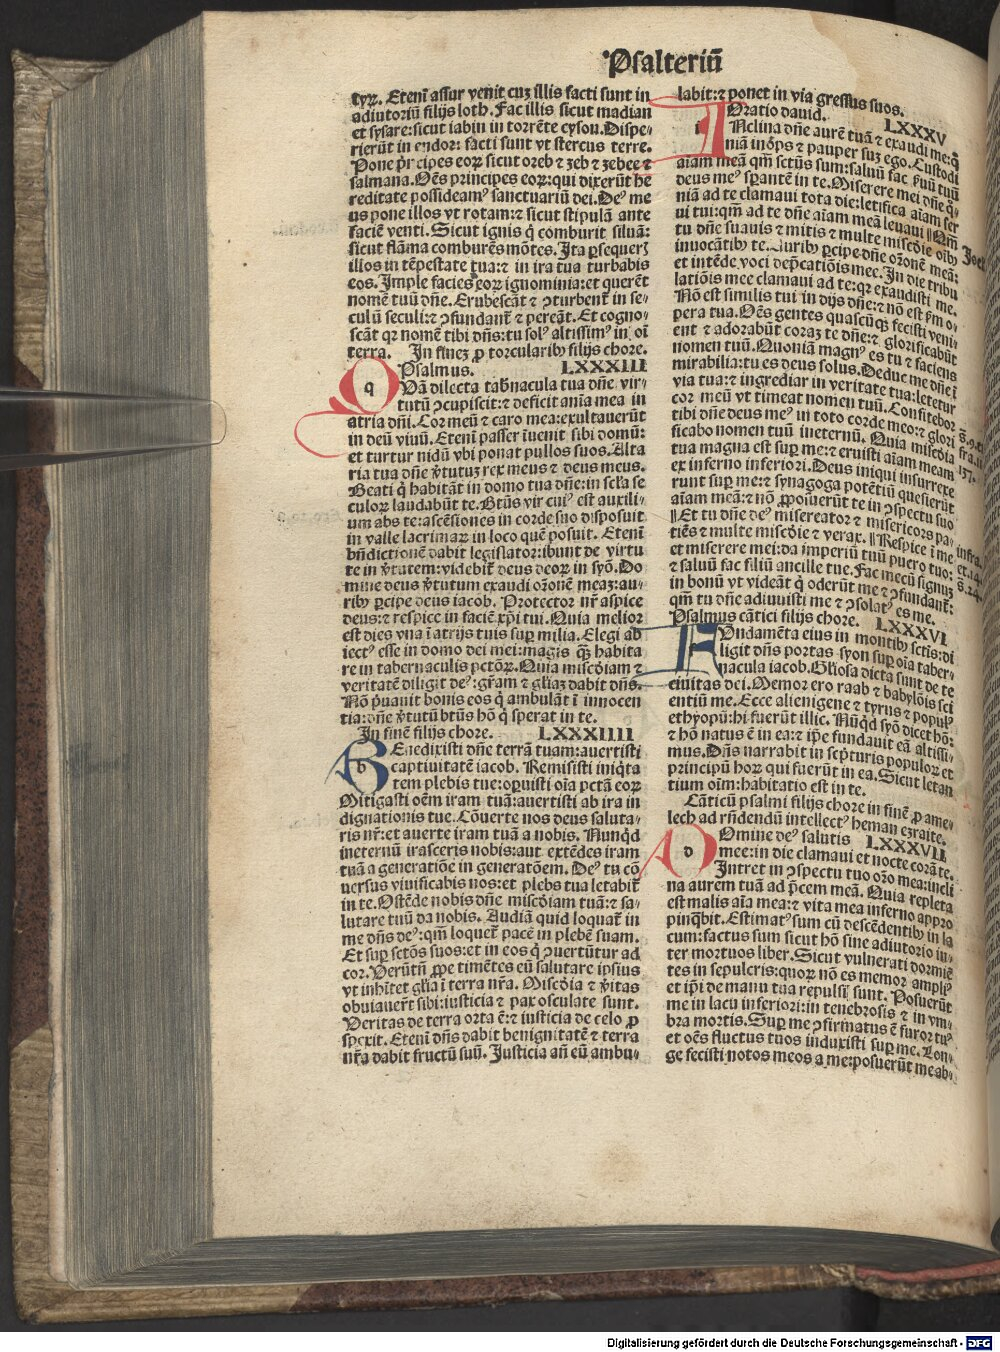 Psalteriū
tyrꝫ. Eteni assur venit cuꝫ illis facti sunt in
adiutoriū filijs loth. Fac illis sicut madian
et sysare: sicut iabin in torrēte cyson. Dispe-
rierūt in endor: facti sunt vt stercus terre.
Pone prīcipes eorꝝ sicut oreb ⁊ zeb ⁊ zebee ⁊
salmana. Oēs principes eorꝝ: qui dixerūt he
reditate possideamꝰ sanctuariū dei. Deꝰ me
us pone illos vt rotam: ⁊ sicut stipulā ante
faciē venti. Sicut ignis q̄ comburit siluā:
sicut flāma comburēs mōtes. Ita ꝑsequerꝭ
illos in tēpestate tua: ⁊ in ira tua turbabis
eos. Imple facies eorꝝ ignominia: et querēt
nomē tuū dn̄e. Erubescāt ⁊ ꝯturbent̄ in se-
culū seculi: ⁊ ꝯfundant̄ ⁊ pereāt. Et cogno-
scāt qꝛ nomē tibi dn̄s: tu solꝰ altissimꝰ in oī
terra. In fineꝫ ꝓ torcularibꝰ filijs chore.
Psalmus. LXXXIII
q Vā dilecta tab̄nacula tua dn̄e vir-
tutū ꝯcupiscit: ⁊ deficit aīa mea in
atria dn̄i. Cor meū ⁊ caro mea: exultauerūt
in deū viuū. Etenī passer īuenit sibi domū:
et turtur nidū vbi ponat pullos suos. Alta
ria tua dn̄e v̄tutuꝫ rex meus ⁊ deus meus.
Beati q̇ habitāt in domo tua dn̄e: in scl̄a se
culorꝝ laudabūt te. Btūs vir cuiꝰ est auxili-
um abs te: ascēsiones in corde suo disposuit
in valle lacrimarꝝ in loco quē posuit. Etenī
bn̄dictionē dabit legislator: ibunt de virtu
te in v̄tatem: videbit̄ deus deorꝝ in syō. Do
mine deus v̄tutum exaudi or̄onē meaꝫ: au-
ribꝰ ꝑcipe deus iacob. Protector nr̄ aspice
deus: ⁊ respice in faciē xp̄i tui. Quia melior
est dies vna ī atrijs tuis suꝑ milia. Elegi ab
iectꝰ esse in domo dei mei: magis qꝫ habita
re in tabernaculis pctōꝝ. Quia misc̄diam ⁊
veritatē diligit deꝰ: gr̄am ⁊ gl̄iaꝫ dabit dn̄s.
Nō p̄uauit bonis eos q̇ ambulāt ī innocen
tia: dn̄e v̄tutū btūs hō q̇ sperat in te.
In finē filijs chore. LXXXIIII
b Enedixisti dn̄e terrā tuam: auertisti
captiuitatē iacob. Remisisti iniq̇ta
tem plebis tue: oꝑuisti oīa pctā eorꝝ
Mitigasti oēm iram tuā: auertisti ab ira in
dignationis tue. Cōuerte nos deus saluta-
ris nr̄: et auerte iram tuā a nobis. Nunq̇d
ineternū irasceris nobis: aut extēdes iram
tuā a generatiōe in generatōem. Deꝰ tu cō
uersus viuificabis nos: et plebs tua letabit̄
in te. Ostēde nobis dn̄e misc̄diam tuā: ⁊ sa-
lutare tuū da nobis. Audiā quid loquat̄ in
me dn̄s deꝰ: qm̄ loquet̄ pacē in plebē suam.
Et suꝑ sctōs suos: et in eos q̇ ꝯuertūtur ad
cor. Verūtn̄ ꝓpe timētes eū salutare ipsius
vt inhītet gl̄ia ī terra nr̄a. Misc̄dia ⁊ v̄itas
obuiauer̄t sibi: iusticia ⁊ pax osculate sunt.
Veritas de terra orta ē: ⁊ iusticia de celo ꝓ
spexit. Etenī dn̄s dabit benignitatē ⁊ terra
nr̄a dabit fructū suū. Justicia an̄ eū ambu-
labit: ⁊ ponet in via gressus suos.
Oratio dauid. LXXXV
i Nclina dn̄e aurē tuā ⁊ exaudi me: q̄
niā inōps ⁊ pauper suꝫ ego. Custodi
aīam meā qm̄ sctūs sum: saluū fac ẜuū tuū
deus meꝰ sꝑantē in te. Miserere mei dn̄e q̄-
niā ad te clamaui tota die: letifica aīam ser
ui tui: qm̄ ad te dn̄e aīam meā leuaui Qm̄
tu dn̄e suauis ⁊ mitis ⁊ multe misc̄die oībꝰ
inuocātibꝰ te. Auribꝰ ꝑcipe dn̄e or̄onē meā:
et intēde voci dep̄catiōis mee. In die tribu
latiōis mee clamaui ad te: qꝛ exaudisti me.
Nō est similis tui in dijs dn̄e: ⁊ nō est ẜm o-
pera tua. Oēs gentes quascūqꝫ fecisti veni-
ent ⁊ adorabūt coraꝫ te dn̄e: ⁊ glorificabūt
nomen tuū. Quoniā magnꝰ es tu ⁊ faciens
mirabilia: tu es deus solus. Deduc me dn̄e ī
via tua: ⁊ ingrediar in veritate tua: letetur
cor meū vt timeat nomen tuū. Confitebor
tibi dn̄e deus meꝰ in toto corde meo: ⁊ glori
ficabo nomen tuū ineternū. Quia misc̄dia
tua magna est suꝑ me: ⁊ eruisti aīam meam
ex inferno inferiori. Deus iniqui insurrexe
runt suꝑ me: ⁊ synagoga potētiū quesierūt
aīam meā: ⁊ nō ꝓposuerūt te in ꝯspectu suo
Et tu dn̄e deꝰ misereator ⁊ misericors pa-
tiēs ⁊ multe misc̄die ⁊ verax. Respice ī me
et miserere mei: da imperiū tuū puero tuo:
⁊ saluū fac filiū ancille tue. Fac mecū signuꝫ
in bonū vt videāt q̇ oderūt me ⁊ ꝯfundant̄:
qm̄ tu dn̄e adiuuisti me ⁊ ꝯsolatꝰ es me.
Psalmus cātici filijs chore. LXXXVI
Vndamēta eius in montibꝰ sctis: di
ligit dn̄s portas syon suꝑ oīa taber-
nacula iacob. Gl̄iosa dicta sunt de te
ciuitas dei. Memor ero raab ⁊ babylōis sci
entiū me. Ecce alienigene ⁊ tyrus ⁊ populꝰ
ethyopū: hi fuerūt illic. Nūq̇d syō dicet hō:
⁊ hō natus ē in ea: ⁊ ip̄e fundauit eā altissi-
mus. Dn̄s narrabit in scꝑturis populorꝝ et
principū horꝝ qui fuerūt in ea. Sicut letan
tium oīm: habitatio est in te.
Cāticū psalmi filijs chore in finē ꝓ ame-
lech ad rn̄dendū intellectꝰ heman eꝫraite.
d Omine deꝰ salutis LXXXVII
mee: in die clamaui et nocte corā te.
Intret in ꝯspectu tuo or̄o mea: incli
na aurem tuā ad p̄cem meā. Quia repleta
est malis aīa mea: ⁊ vita mea inferno appro
pinq̄bit. Estimatꝰ sum cū descēdentibꝰ in la
cum: factus sum sicut hō sine adiutorio in-
ter mortuos liber. Sicut vulnerati dormiē
tes in sepulcris: quorꝝ nō es memor ampliꝰ
et ip̄i de manu tua repulsi sunt. Posuerūt
me in lacu inferiori: in tenebrosis ⁊ in vm-
bra mortis. Suꝑ me ꝯfirmatus ē furor tuꝰ
et oēs fluctus tuos induxisti suꝑ me. Lon-
ge fecisti notos meos a me: posuerūt me ab-
Joel
infra.
Digitalisierung gefördert durch die Deutsche Forschungsgemeinschaft - DFG